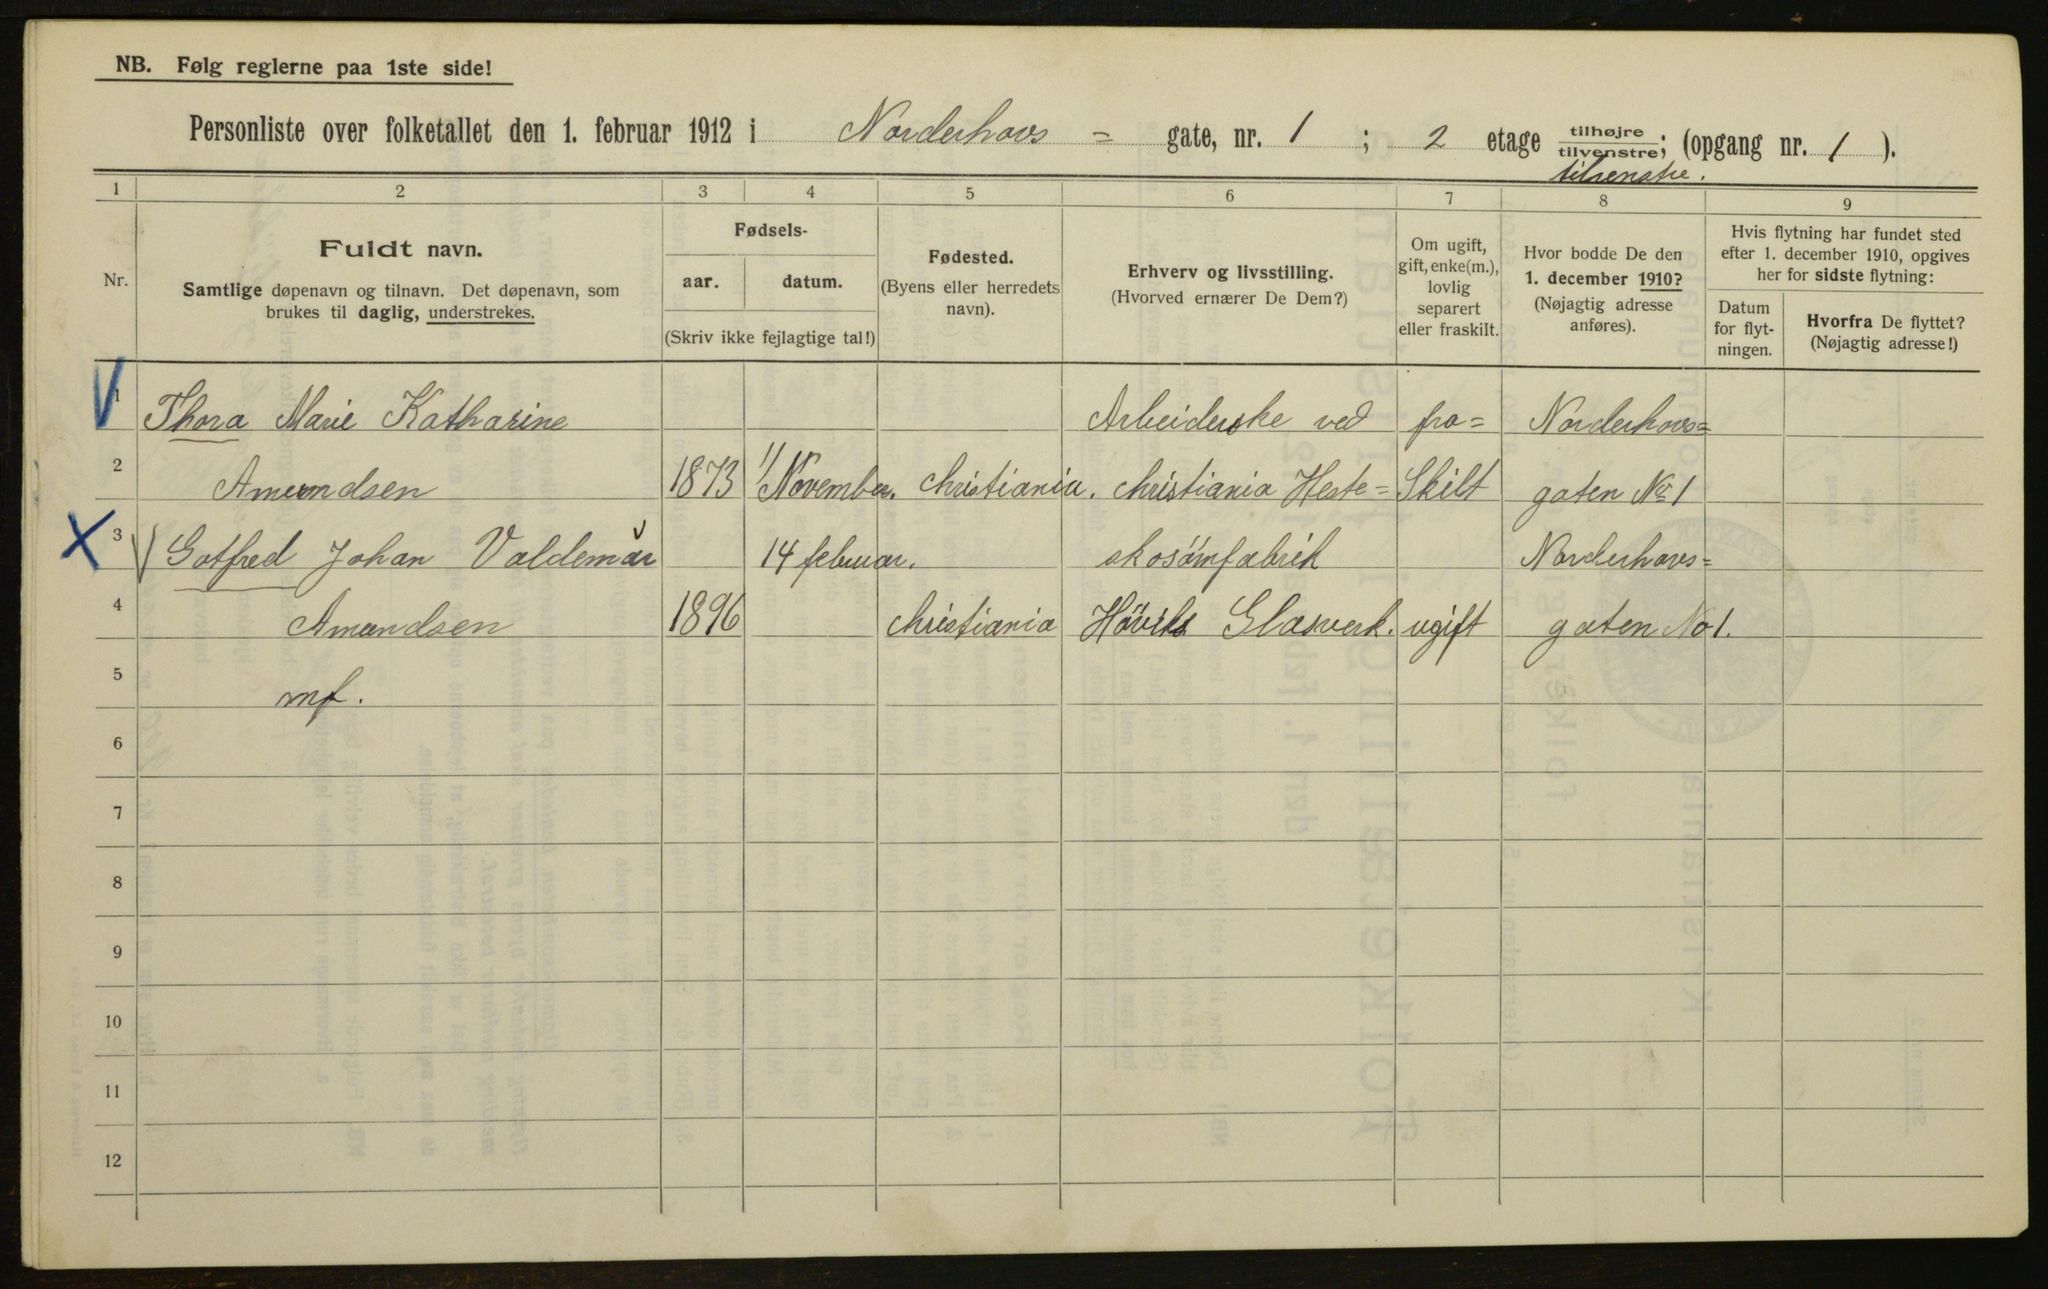 NB. Følg reglerne paa 1ste side!
Personliste over folketallet den 1. februar 1912 i Norderhovs = gate, nr. 1 ; 2 etage tilhøjre tilvenstre; (opgang nr. 1 ).
tilvenstre.
1 2 3 4 5 6 7 8 9
Nr.
Fuldt navn.
Samtlige døpenavn og tilnavn. Det døpenavn, som
brukes til daglig, understrekes.
Fødsels-
aar. datum.
(Skriv ikke fejlagtige tal!)
Fødested.
(Byens eller herredets
navn).
Erhverv og livsstilling.
(Hvorved ernærer De Dem?)
Om ugift,
gift, enke(m.),
lovlig
separert
eller fraskilt.
Hvor bodde De den
1. december 1910?
(Nøjagtig adresse
anføres).
Hvis flytning har fundet sted
efter 1. december 1910, opgives
her for sidste flytning:
Datum
for flyt-
ningen.
Hvorfra De flyttet?
(Nøjagtig adresse!)
1 Thora Marie Katharine Arbeiderske ved fra= Norderhovs=
2 Amundsen 1873 11/November. Christiania. Christiania Heste= Skilt gaten No 1
3 Gotfred Johan Valdemar 14 februar. skosömfabrik Norderhovs=
4 Amundsen 1896 Christiania Höviks Glasverk. ugift gaten No 1.
5 mf.
6
7
8
9
10
11
12